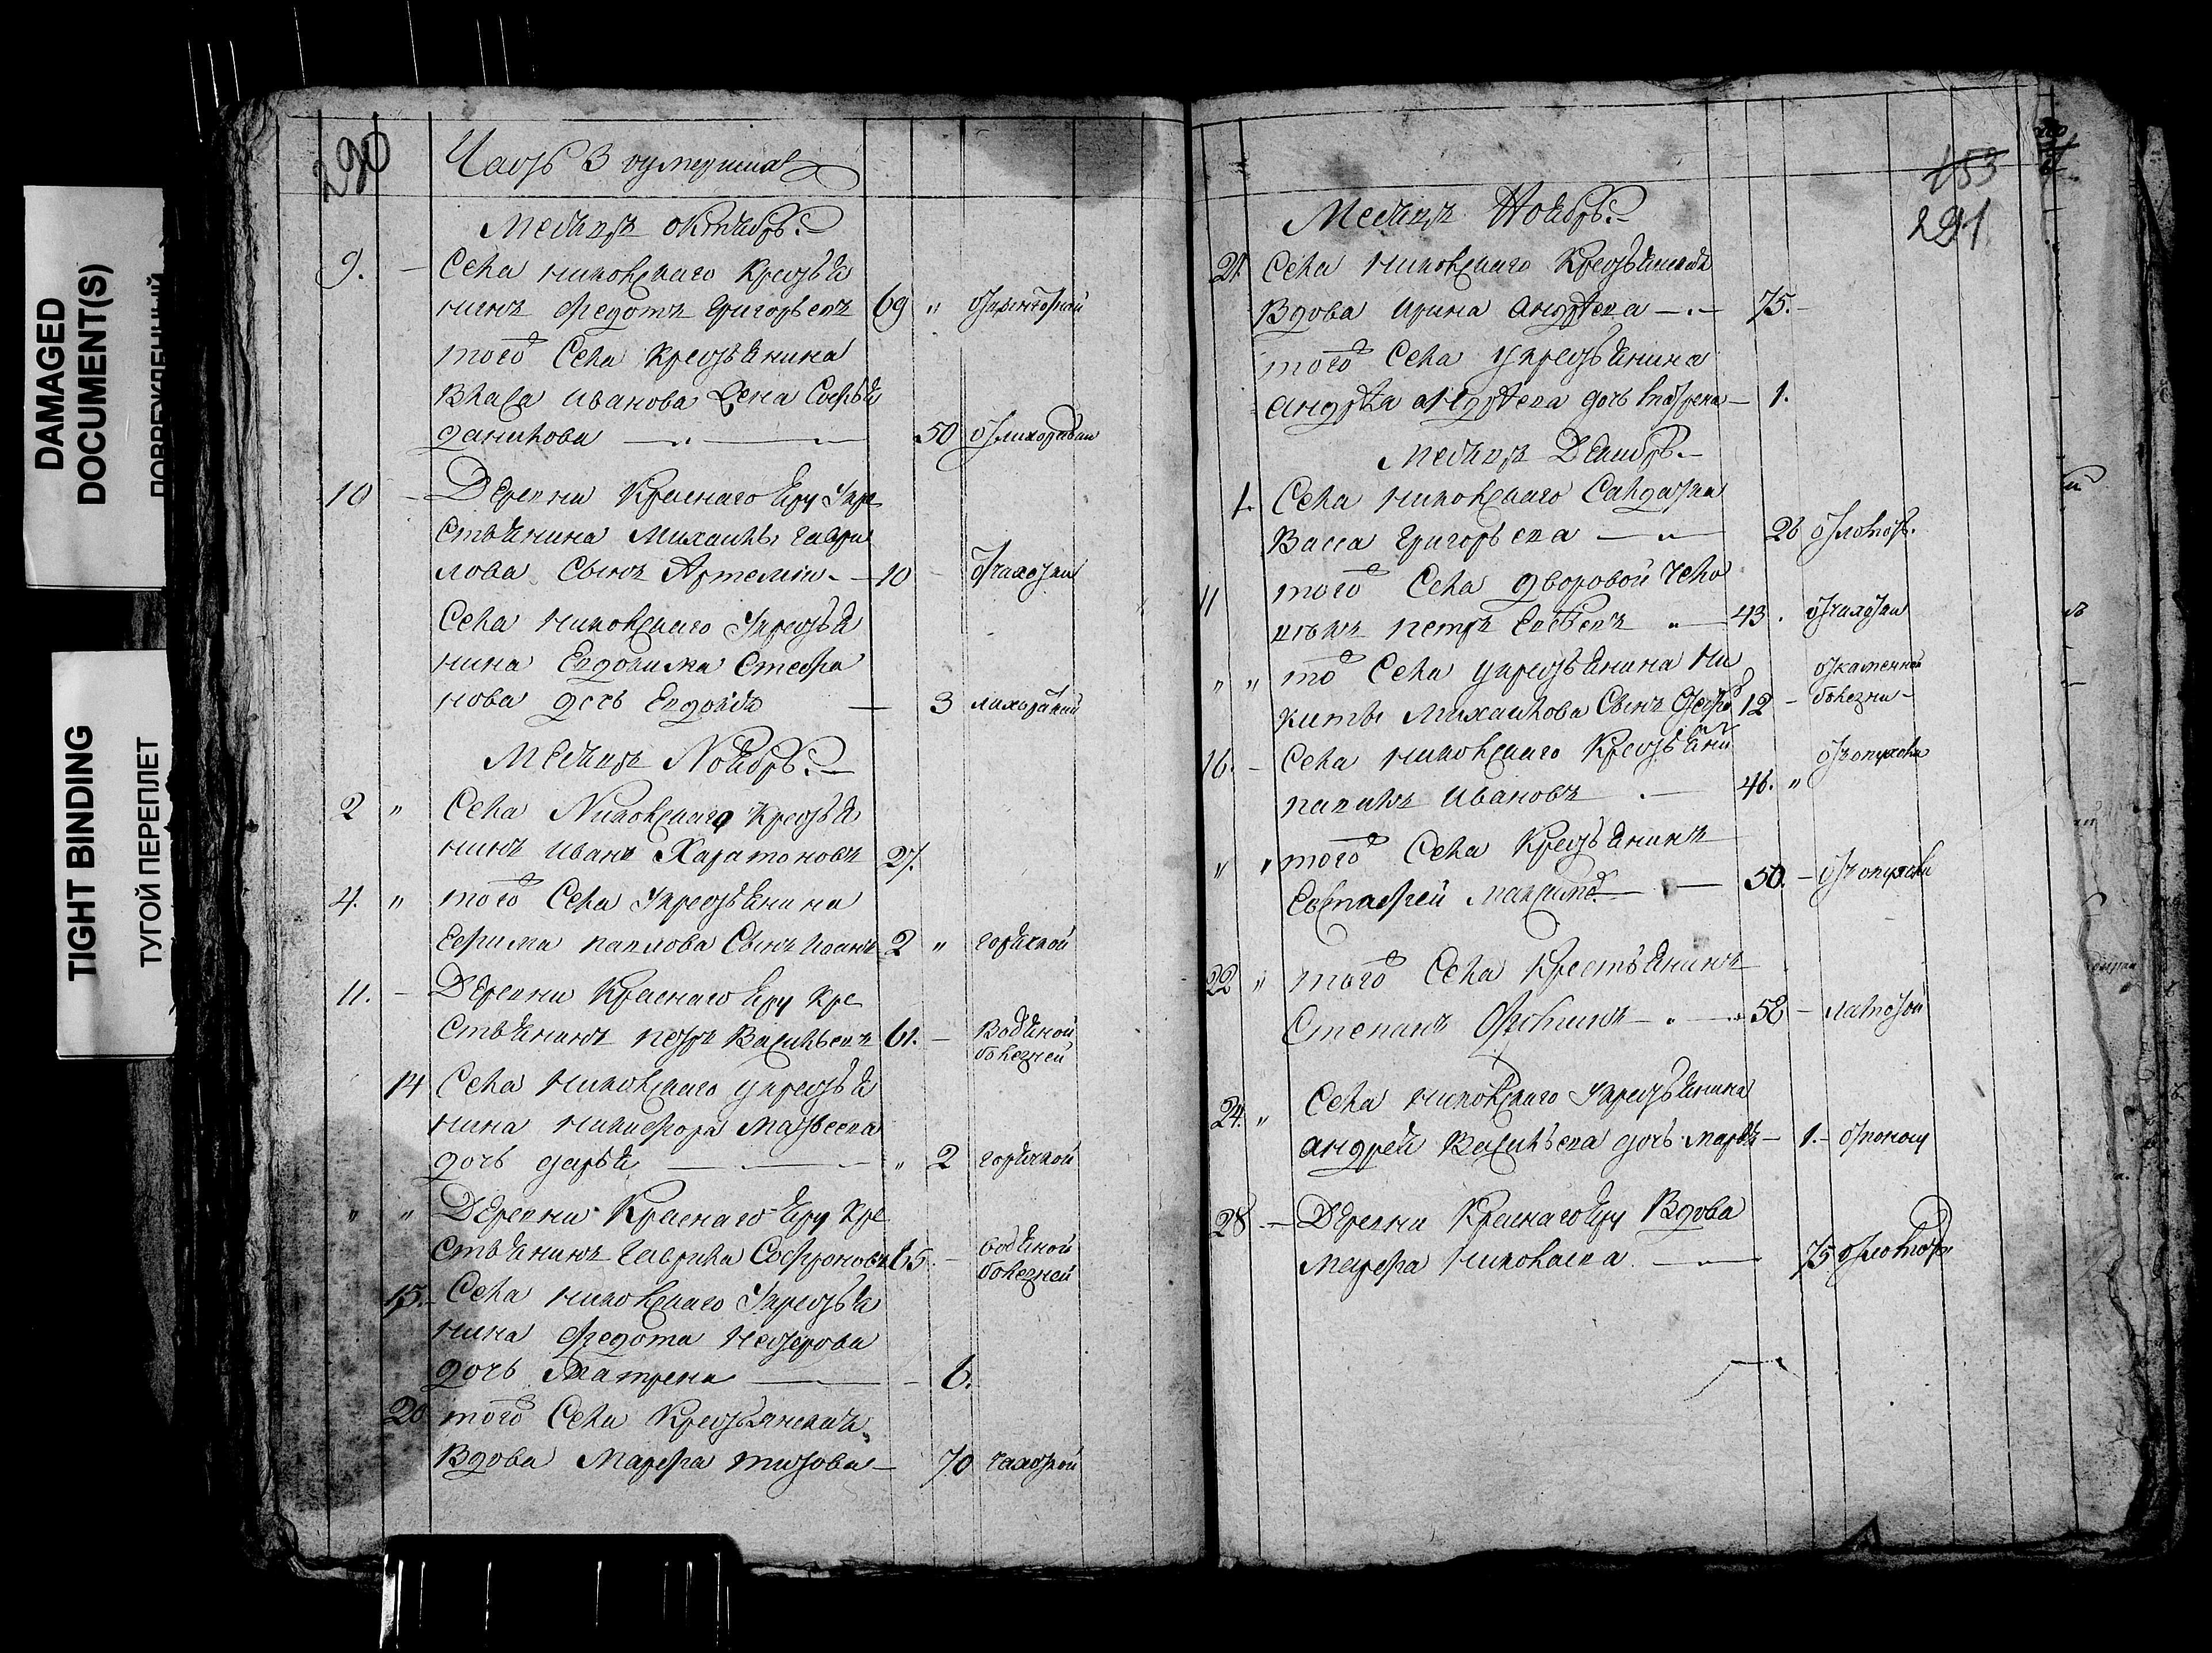 DAMAGED
DOCUMENT(S)
ПОВРЕЖДЕННЫЙ
TIGHT BINDING
ТУГОЙ ПЕРЕПЛЕТ
290
Часть 3 оумерших
Месяцъ октябрь.
9. Села николскаго Крестья
нинъ Федотъ Григорьевъ 69 "
того Села крестьянина
Власа Иванова Жена Софья
данилова 50 от лихоратки
10 Деревни Краснаго Яру у кре
стьянина Михаилы гаври
лова Сынъ Артемий 10 от чахотки
Села николскаго у крестья
нина Евдокима Стефа
нова дочь Евдокия 3 лихораткой
Месяцъ Ноябрь.
2 " Села Николскаго крестья
нинъ Иванъ Харитоновъ 27.
4. " того Села у крестьянина
Ефима павлова Сынъ Иоанъ 2 " горячкой
11. Деревни Краснаго Яру кре
стьянинъ петръ Васильевъ 61. водяной
болезней
14 Села николскаго у крестья
нина никифора матвеева
дочь дарья " 2 горячкой
" " Деревни Краснаго Яру кре
стьянинъ Гаврила Софроновъ 65. водяной
болезней
15. Села николскаго у крестья
нина Федота Нестерова
дочь Матрена 6.
20 того Села Крестьянская
Вдова Марфа титова 70 чахоткой
153
291
Месяцъ Ноябрь.
21. Села николскаго Крестьянская
Вдова Ирина андреева 75.
того Села у крестьянина
андрея андреева дочь 1.
месяцъ Декабрь.
1. Села николскаго Салдатка
Васса Григорьева 26
11 того Села дворовой чело
векъ петръ 43. от чахотки
" " то Села у крестьянина ни
киты михаилова Сынъ 12 от каменной
болезни
16. Села николскаго Крестьяни
Ивановъ 46. " от опухоли
" " того Села Крестьянинъ
Евстафей 50. от опухоли
22 " того Села Крестьянинъ
Степанъ 58
24. " Села николскаго у крестьянина
андрея Васильева дочь марья 1. от поносу
28. Деревни Краснаго Яру Вдова
марфа николаева 75